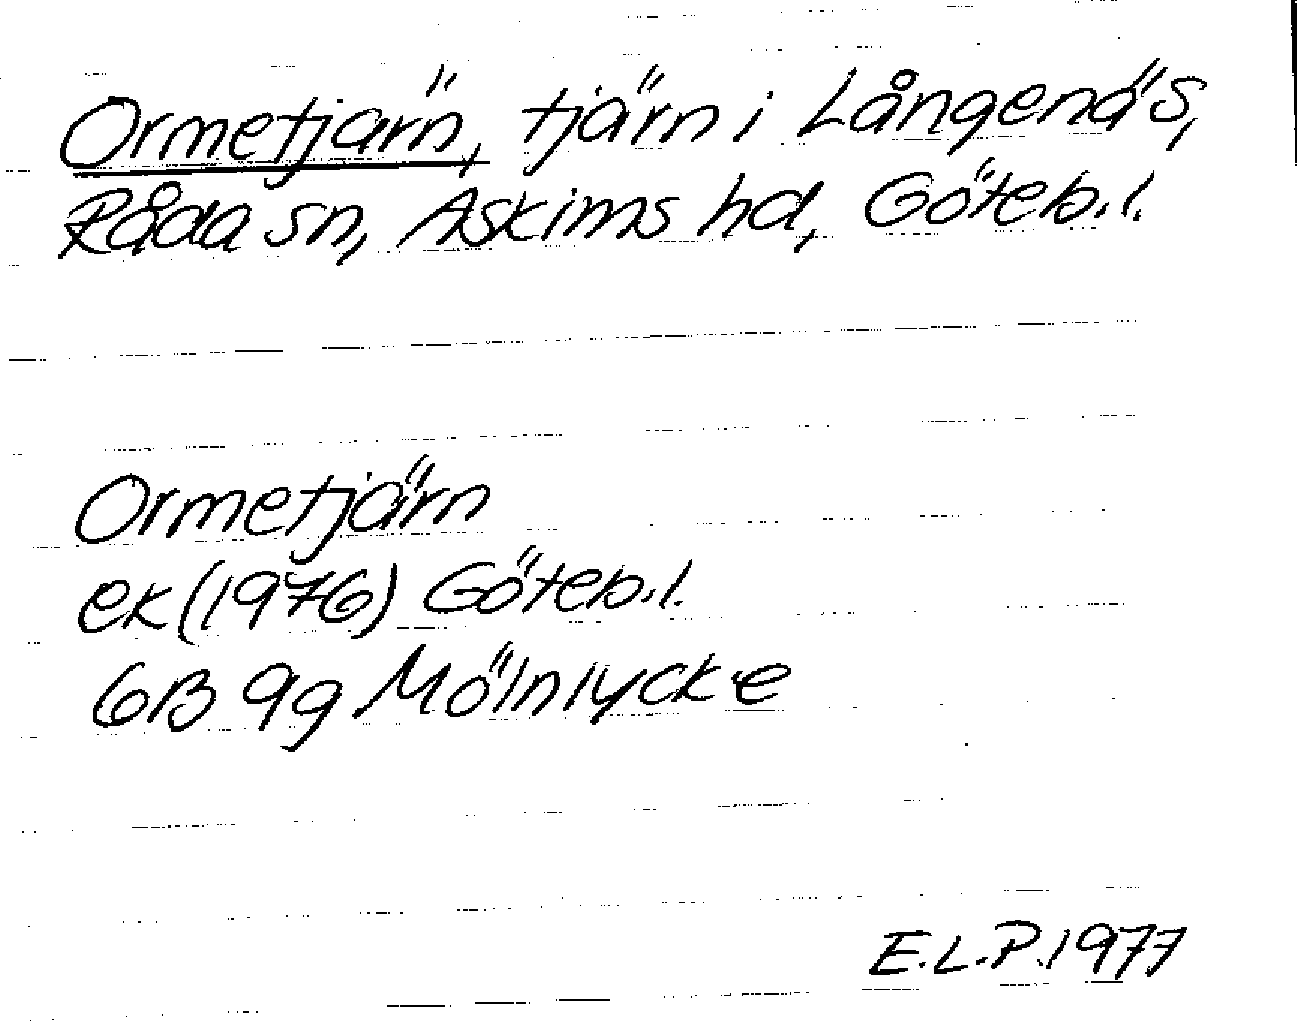 Ormetjärn, tjärn i Långenäs,
Råda sn, Askims hd, Göteb.l.
Ormetjärn
ek (1976) Göteb.l.
6B 9g Mölnlycke
E.L.P. 1977